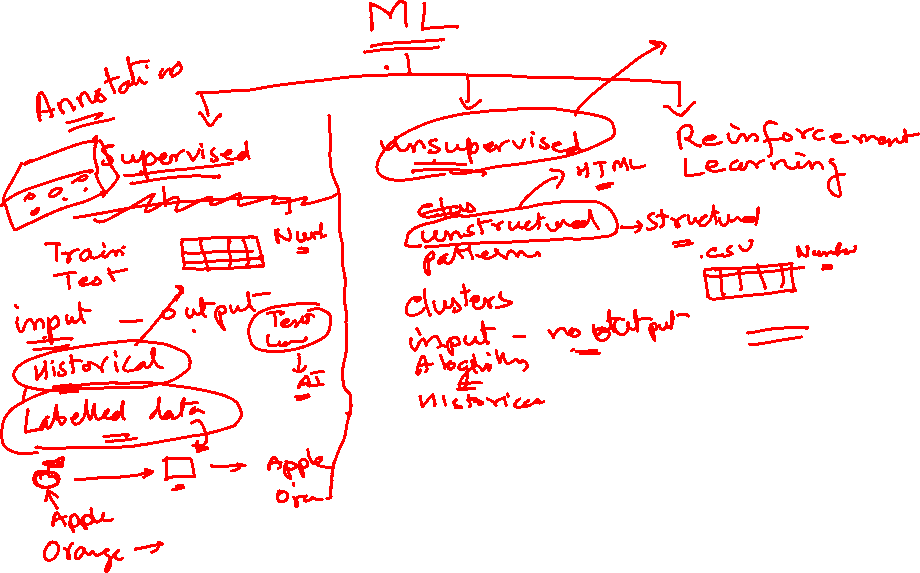 ML
Annotation
Supervised
Train
Test
Num
input - output
Historical
Labelled data
Text
AI
Apple
Apple
Orange →
unsupervised
HTML
unstructured → structured
patterns
.csv
Number
clusters
input - no output
Historical
Reinforcement
Learning